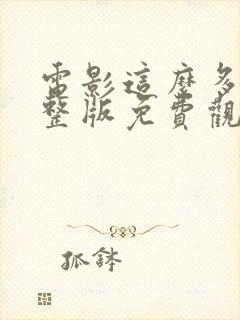 電影這麼多
整版免費觀
狐鉢